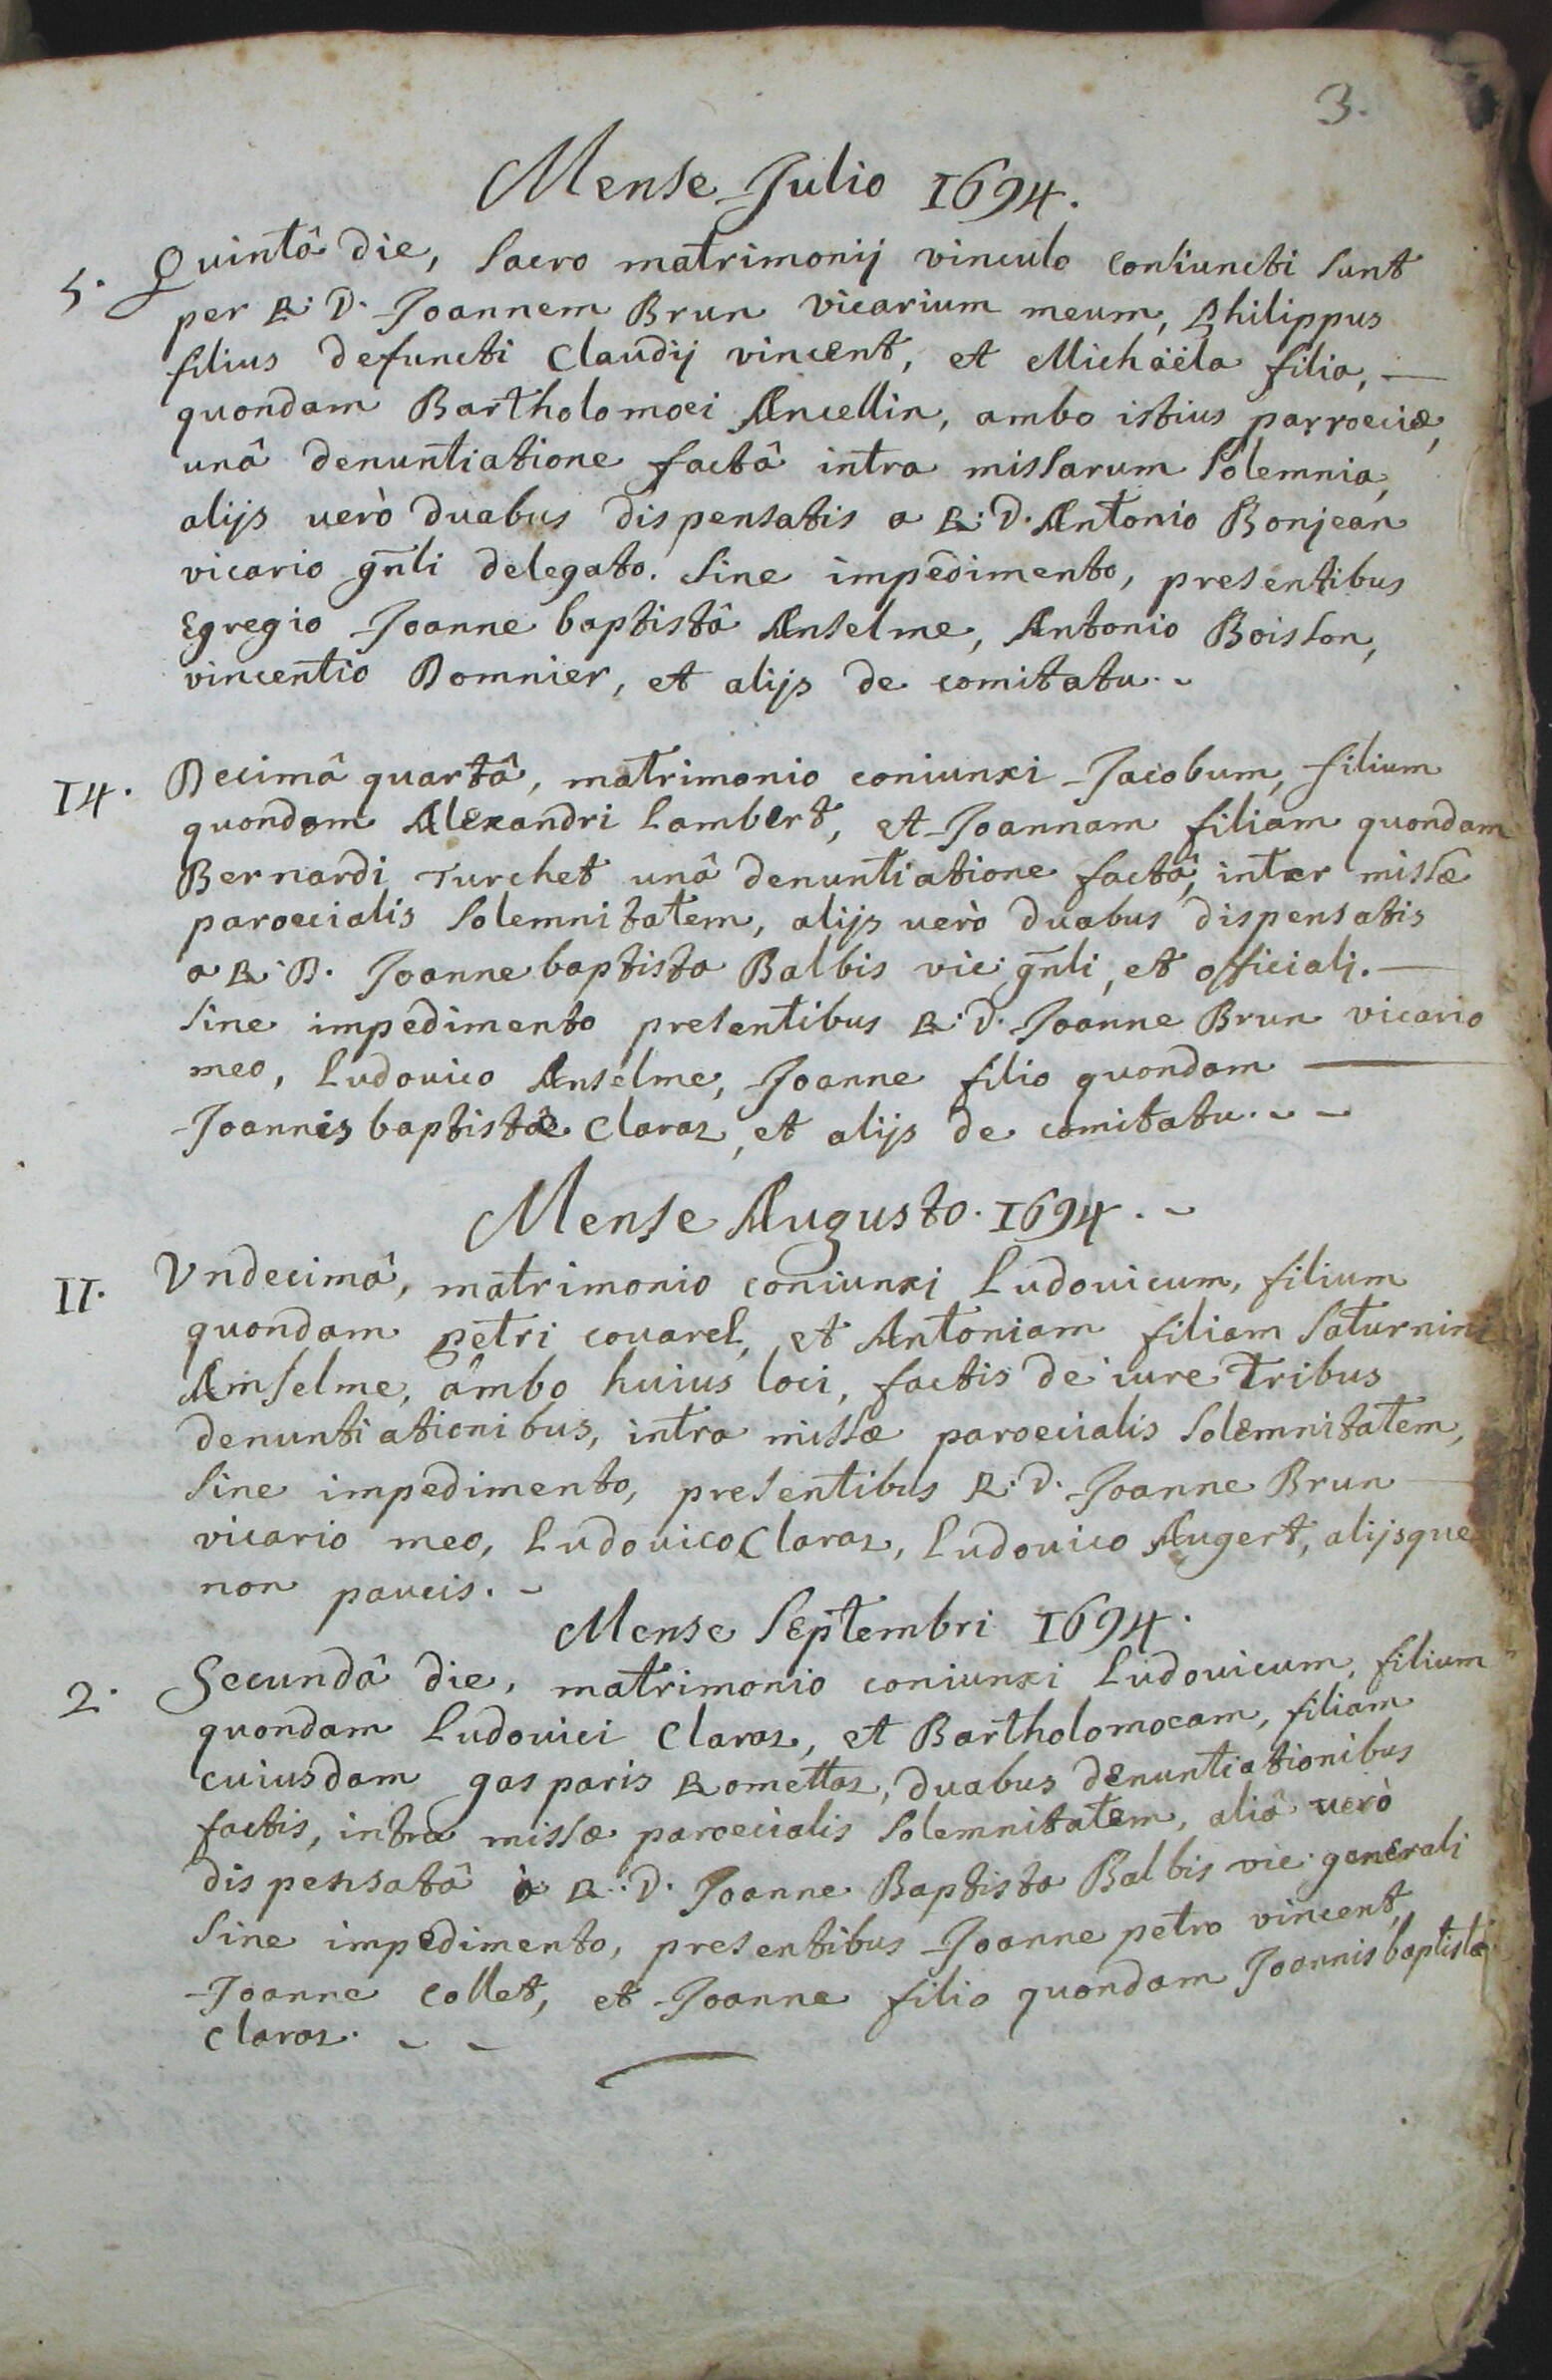 3.
Mense Julio 1694.
5. Quintâ die, sacro matrimonij vinculo coniuncti sunt
per R: D. Joannem Brun vicarium meum, Philippus
filius defuncti Claudij vincent, et Michaëla filia, —
quondam Bartholomoei Ancellin, ambo istius parroeciæ,
unâ denuntiatione factâ intra missarum solemnia,
alijs uerò duabus dispensatis a R: D. Antonio Bonjean
vicario gñli delegato. sine impedimento, presentibus
Egregio Joanne baptistâ Anselme, Antonio Boisson,
vincentio Domnier, et alijs de comitatu. ~
14. Decimâ quartâ, matrimonio coniunxi Jacobum, filium
quondam Alexandri Lambert, et Joannam filiam quondam
Bernardi Turchet unâ denuntiatione factâ, inter missæ
paroecialis solemnitatem, alijs uerò duabus dispensatis
a R: D. Joanne baptista Balbis vic: gñli, et officialj. —
sine impedimento presentibus R: D. Joanne Brun vicario
meo, Ludouico Anselme, Joanne filio quondam —
Joannis baptistæ Claraz, et alijs de comitatu. ~ ~
Mense Augusto. 1694. ~
11. Vndecimâ, matrimonio coniunxi Ludouicum, filium
quondam petri couarel, et Antoniam filiam Saturnini
Anselme, ambo huius loci, factis de iure tribus
denuntiationibus, intra missæ paroecialis solemnitatem,
sine impedimento, presentibus R: D. Joanne Brun —
vicario meo, Ludouico Claraz, Ludouico Augert, alijsque
non paucis. ~
Mense Septembri 1694.
2. Secundâ die, matrimonio coniunxi Ludouicum, filium
quondam Ludouici Claraz, et Bartholomoeam, filiam
cuiusdam gasparis Romettaz, duabus denuntiationibus
factis, intra missæ paroecialis solemnitatem, aliâ uerò
dispensatâ à R: D. Joanne Baptista Balbis vic: generali
sine impedimento, presentibus Joanne petro vincent,
Joanne Collet, et Joanne filio quondam Joannis baptistæ
Claraz. ~ ~